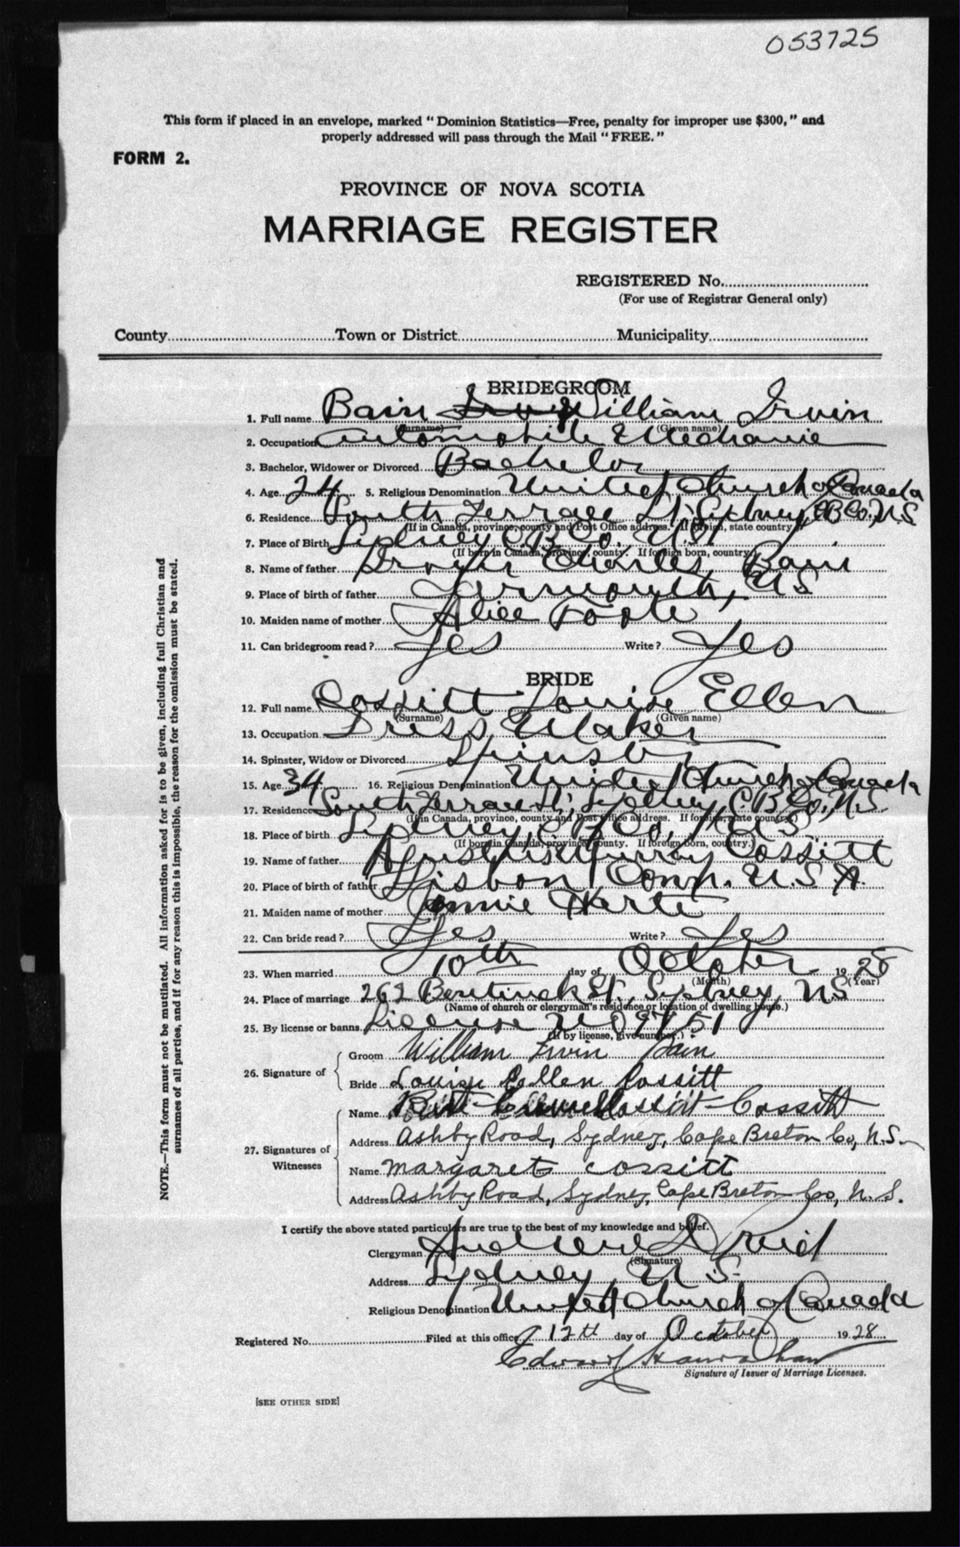 053725
This form if placed in an envelope, marked "Dominion Statistics—Free, penalty for improper use $300," and
properly addressed will pass through the Mail "FREE."
FORM 2.
PROVINCE OF NOVA SCOTIA
MARRIAGE REGISTER
REGISTERED No.
(For use of Registrar General only)
County Town or District Municipality
BRIDEGROOM
1. Full name Bain William Irvin
(Surname) (Given name)
2. Occupation Automobile Mechanic
3. Bachelor, Widower or Divorced Bachelor
4. Age 24 5. Religious Denomination United Church of Canada
6. Residence South Terrace St Sydney, C B Co. N S
(If in Canada, province, county and Post Office address. If foreign, state country)
7. Place of Birth Sydney C. B. Co. N. S.
(If born in Canada, province, county. If foreign born, country.)
8. Name of father Charles Bain
9. Place of birth of father Yarmouth, N S
10. Maiden name of mother Alice Foote
11. Can bridegroom read? Yes Write? Yes
BRIDE
12. Full name Cossitt Louise Ellen
(Surname) (Given name)
13. Occupation Dress Maker
14. Spinster, Widow or Divorced Spinster
15. Age 34 16. Religious Denomination United Church of Canada
17. Residence South Terrace St. Sydney, C. B. Co, N. S.
(If in Canada, province, county and Post Office address. If foreign, state country.)
18. Place of birth Sydney, C B Co, N. S
(If born in Canada, province, county. If foreign born, country.)
19. Name of father Murray Cossitt
20. Place of birth of father Lisbon Conn. U. S. A.
21. Maiden name of mother Jennie Harte
22. Can bride read? Yes Write? Yes
23. When married 10th day of October 1928
(Month) (Year)
24. Place of marriage 262 Bentinck St, Sydney, N S
(Name of church or clergyman's residence or location of dwelling house.)
25. By license or banns License No
(If by license, give number.)
26. Signature of
Groom William Irvin Bain
Bride Louise Ellen Cossitt
27. Signatures of Witnesses
Name Cossitt
Address Ashby Road, Sydney, Cape Breton Co, N.S.
Name Margaret Cossitt
Address Ashby Road, Sydney, Cape Breton Co, N. S.
I certify the above stated particulars are true to the best of my knowledge and belief.
Clergyman
(Signature)
Address Sydney, N. S.
Religious Denomination United Church of Canada
Registered No. Filed at this office 12th day of October 1928
Edward
Signature of Issuer of Marriage Licenses.
[SEE OTHER SIDE]
NOTE.—This form must not be mutilated. All information asked for is to be given, including full Christian and
surnames of all parties, and if for any reason this is impossible, the reason for the omission must be stated.